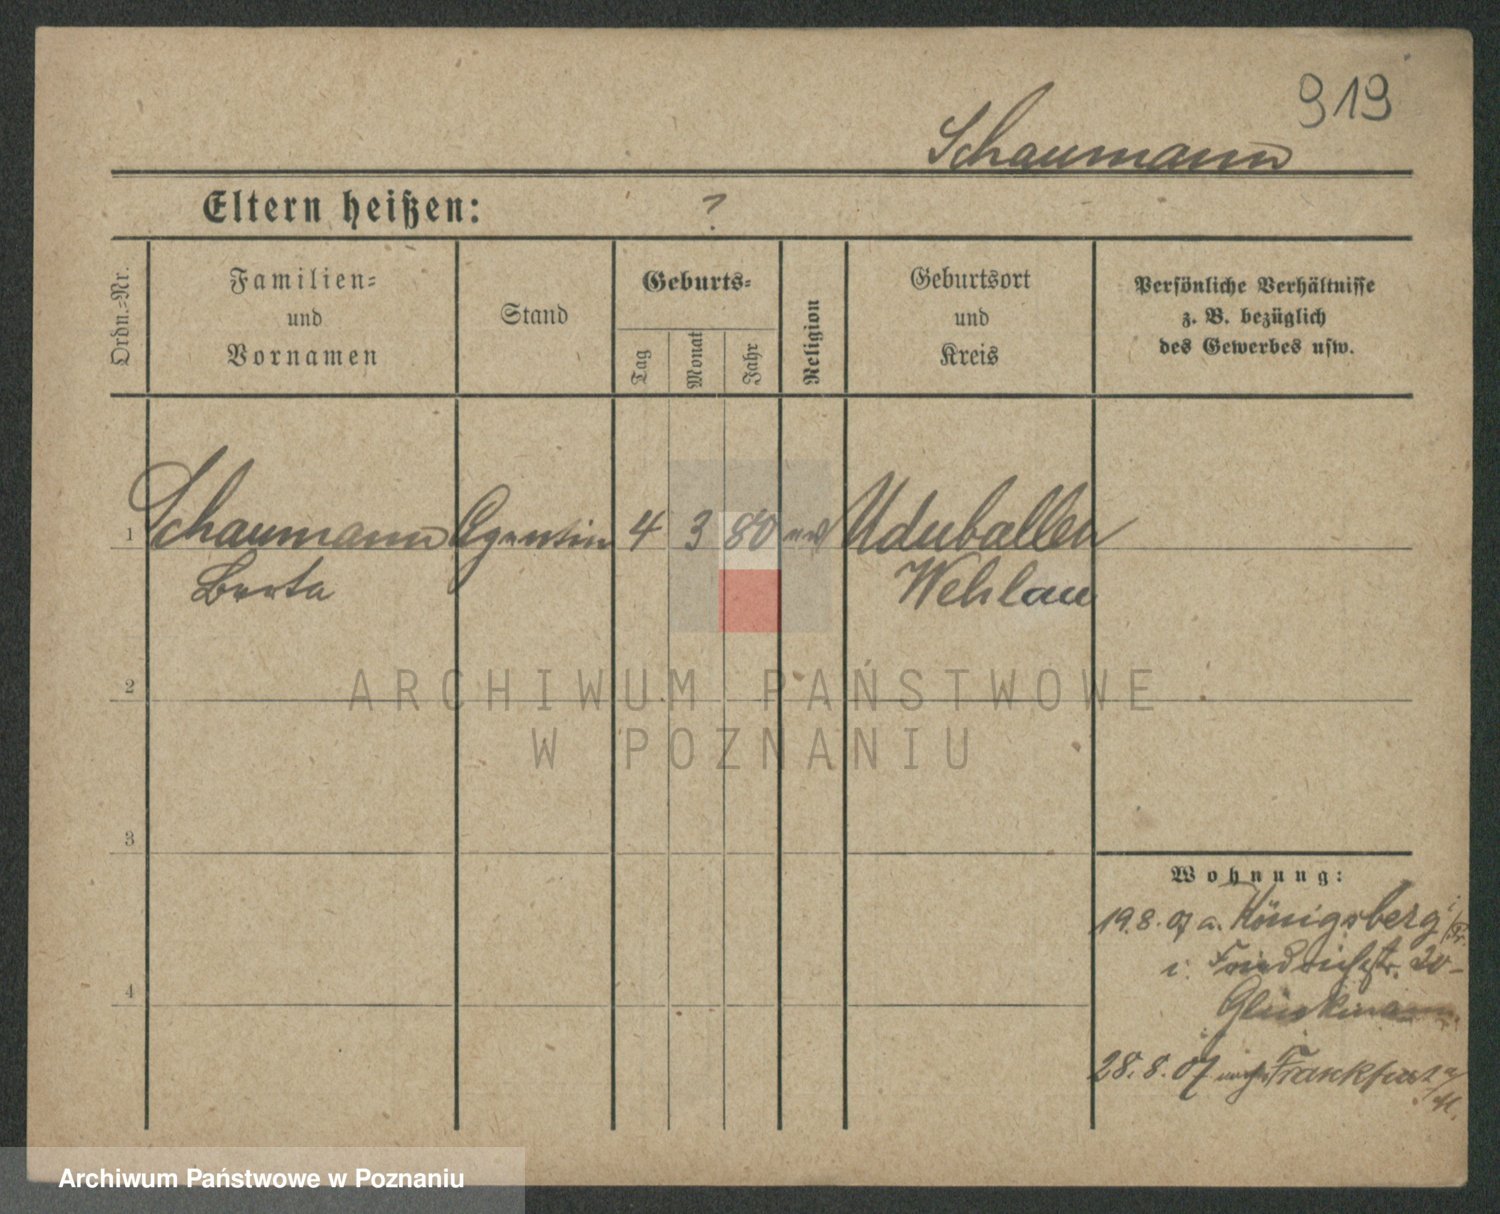 919
Schaumann
Eltern heißen: ?
Ordn.=Nr.
Familien=
und
Vornamen
Stand
Geburts=
Tag
Monat
Jahr
Religion
Geburtsort
und
Kreis
Persönliche Verhältnisse
z. B. bezüglich
des Gewerbes usw.
1 Schaumann Agentin 4 3 80 Uduballen
Berta Wehlau
2
3
4
Wohnung:
19.8.07 a. Königsberg i/Pr.
i. Friedrichstr. 20
28.8.07 nach Frankfurt a/M.
ARCHIWUM PAŃSTWOWE
W POZNANIU
Archiwum Państwowe w Poznaniu